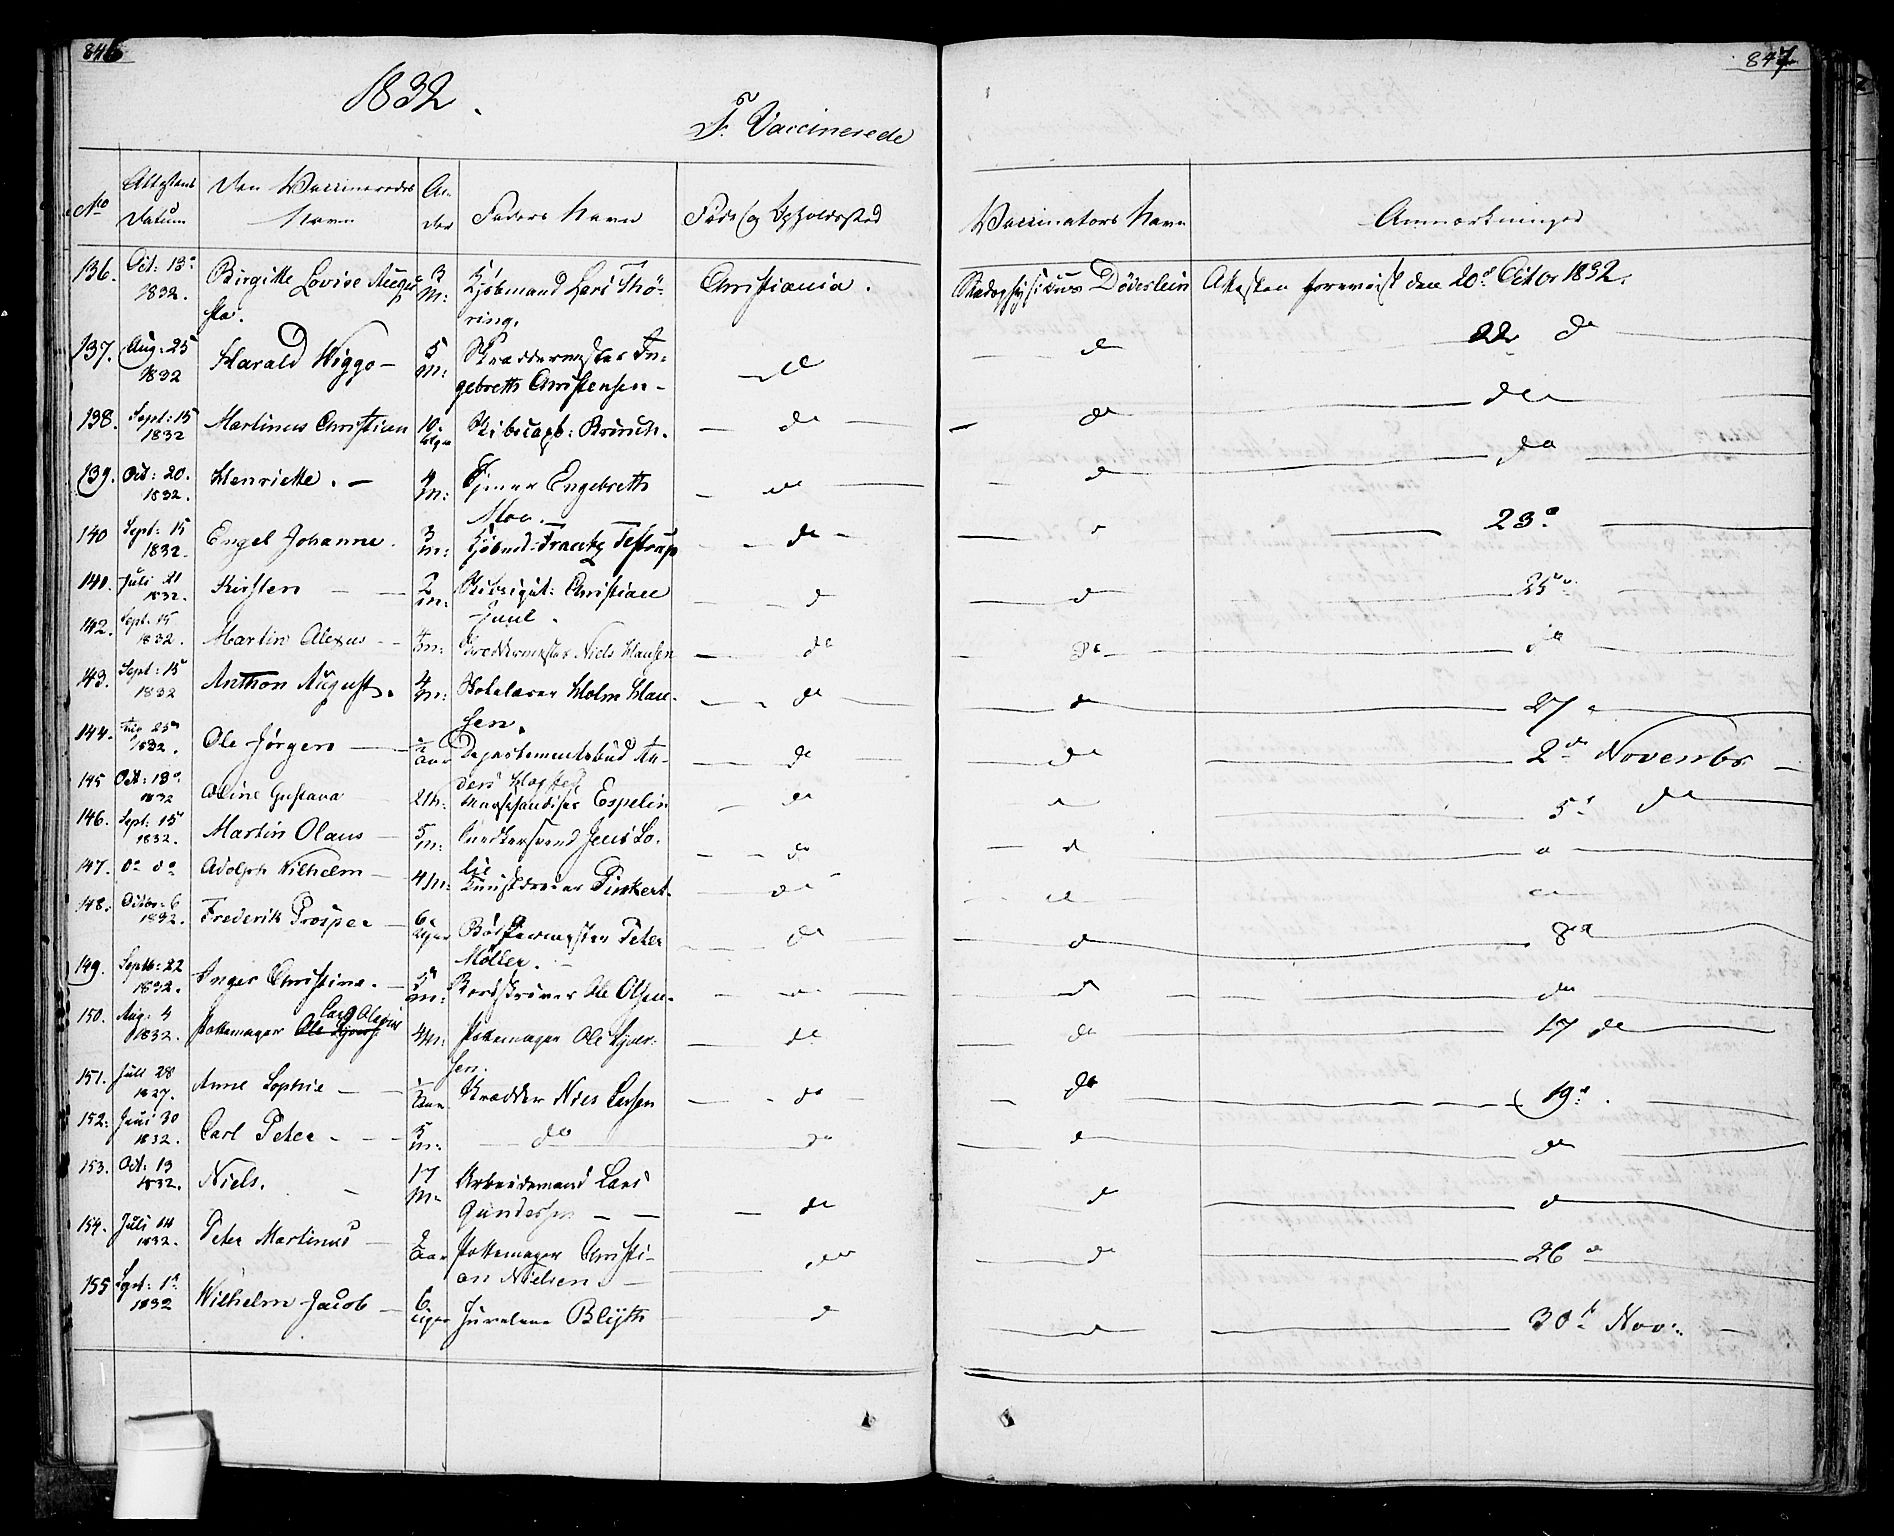 846
1832.
F. Vaccinerede
No Attestens Datum Den Vaccineredes Navn Alder Faders Navn Føde og Opholdssted
136. Oct: 13de 1832. Birgitte Lovise Augusta. 3 M: Kjøbmand Lars Thøring. Christiania.
137. Aug: 25 1832 Harald Wiggo — 5 M: Skræddermester Ingebreth Christensen — de
138. Sept: 15 1832 Martinus Christian 10 Uger Skibscapt: Brinch. — de —
139. Oct: 20. 1832. Henriette. — 4 M: Tjener Engebreth Moe. — de —
140 Sept: 15 1832. Engel Johanne. 3 m: Kjøbmd: Frantz Testrup — de —
141. Juli 21 1832. Kirsten — 2 m: Christian Juul. — d
142. Sept: 15 1832. Martin Alexus — 4 m: Skræddermester Niels Hansen — de
143. Sept: 15 1832 Anthon August. 4 M: Skolelærer Holm Hansen. — de —
144. Aug 25 1832. Ole Jørgen — ½ aar Departementsbud Anders — de
145 Oct: 13de 1832 Oline Gustava 2 M: Espelin — de
146. Sept: 15 1832. Martin Olaus — 5 m: Snedkersvend Jens — de
147. do do Adolph Wilhelm — 4 M: Pinkert. — de
148. Octbr: 6 1832. Frederik Prosper — 6 Uger Peter Møller. — de
149. Septb: 22 1832. Inger Christine. — 5 m: Ole Olsen. — de
150. Aug: 4 1832. Pottemager Ole Iversen Carl Alexius 4 m: Pottemager Ole Iversen. — de
151. Juli 28 1827. Anne Sophie — ½ aar Skrædder Niels Larsen — de
152. Juni 30 1832. Carl Peter — 5 m: — do — de
153. Oct: 13 1832. Niels. — 17 M. Arbeidsmand Lars Gundersen — de
154. Juli 14 1832. Peter Martinus — 2 aar Pottemager Christian Nielsen. — de
155 Sept: 1de 1832 Wilhelm Jacob — 6 Uger Juveleer Blyth — d
847
Vaccinators Navn Anmærkninger
Stadsphysicus Døderlein Attesten foreviist den 20de Octor 1832.
— d — 22 de
— de — de
— d — da
— d — 23de
— d — 25de
— de — de
— de — 27 —
— de — 2de Novembr —
— d — 5te de
— d — d
— d — d
— d — 8de
— d — de
— de — 17 de
— de — 19de.
— d — de
— d — d
— d — 26 de
— d — 30te Nov: —